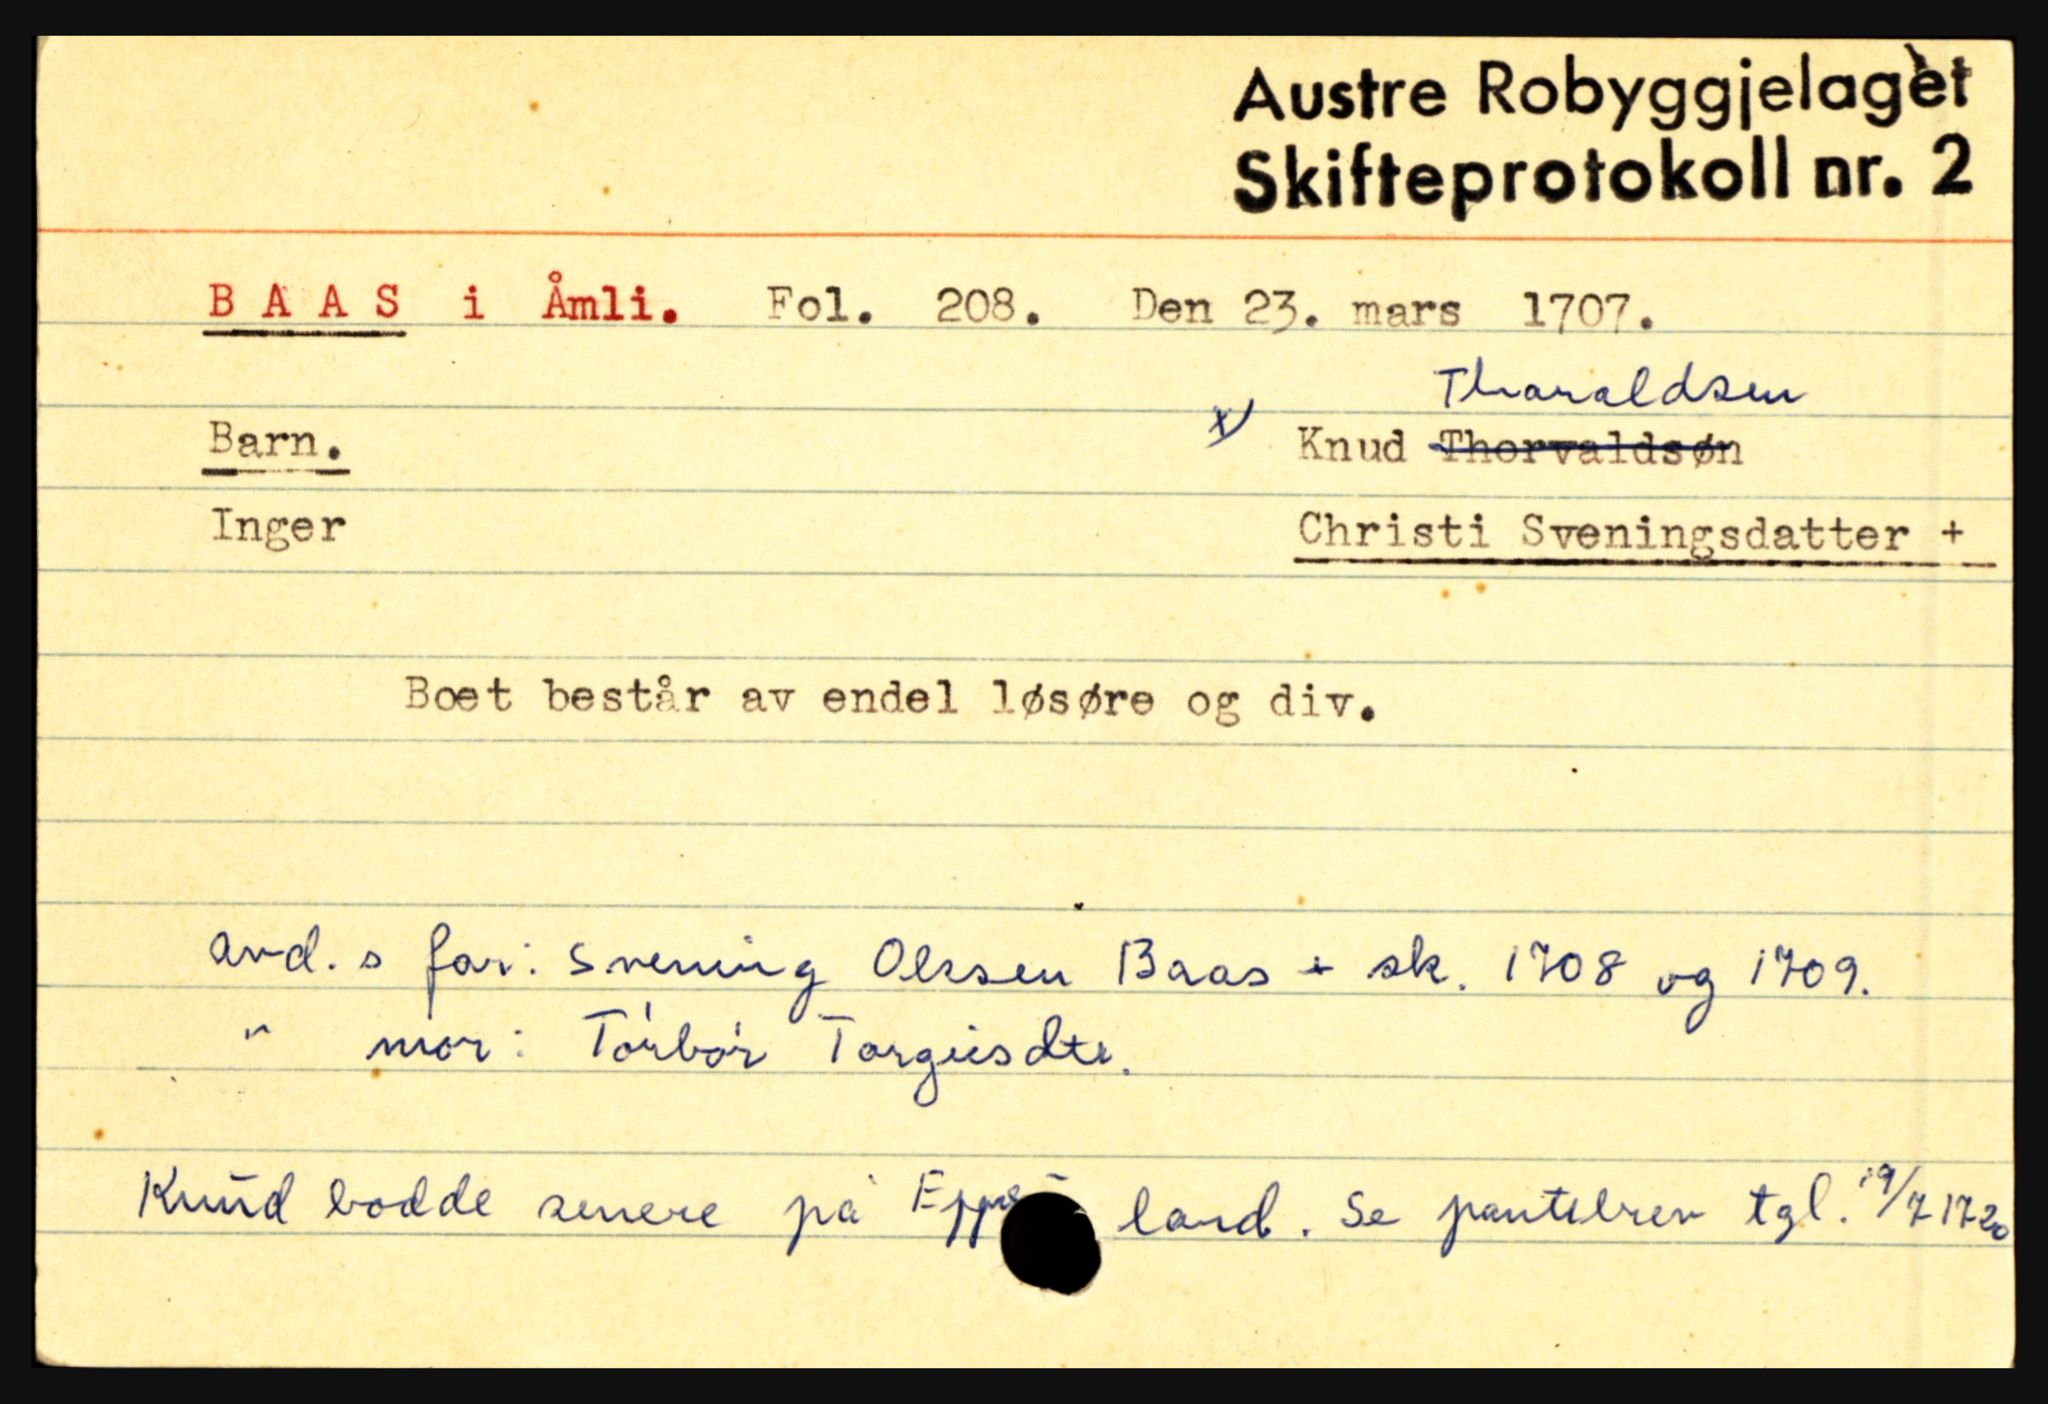 Austre Robyggjelaget
Skifteprotokoll nr. 2
BAAS i Åmli. Fol. 208. Den 23. mars 1707.
Tharaldsen
Barn. x) Knud Thorvaldsøn
Inger Christi Sveningsdatter +
Boet består av endel løsøre og div.
avd. s far: Svening Olssen Baas + sk. 1708 og 1709.
" mor: Torbor Targiisdtr.
Knud bodde senere på land. Se pantebrev tgl. 19/7 1720